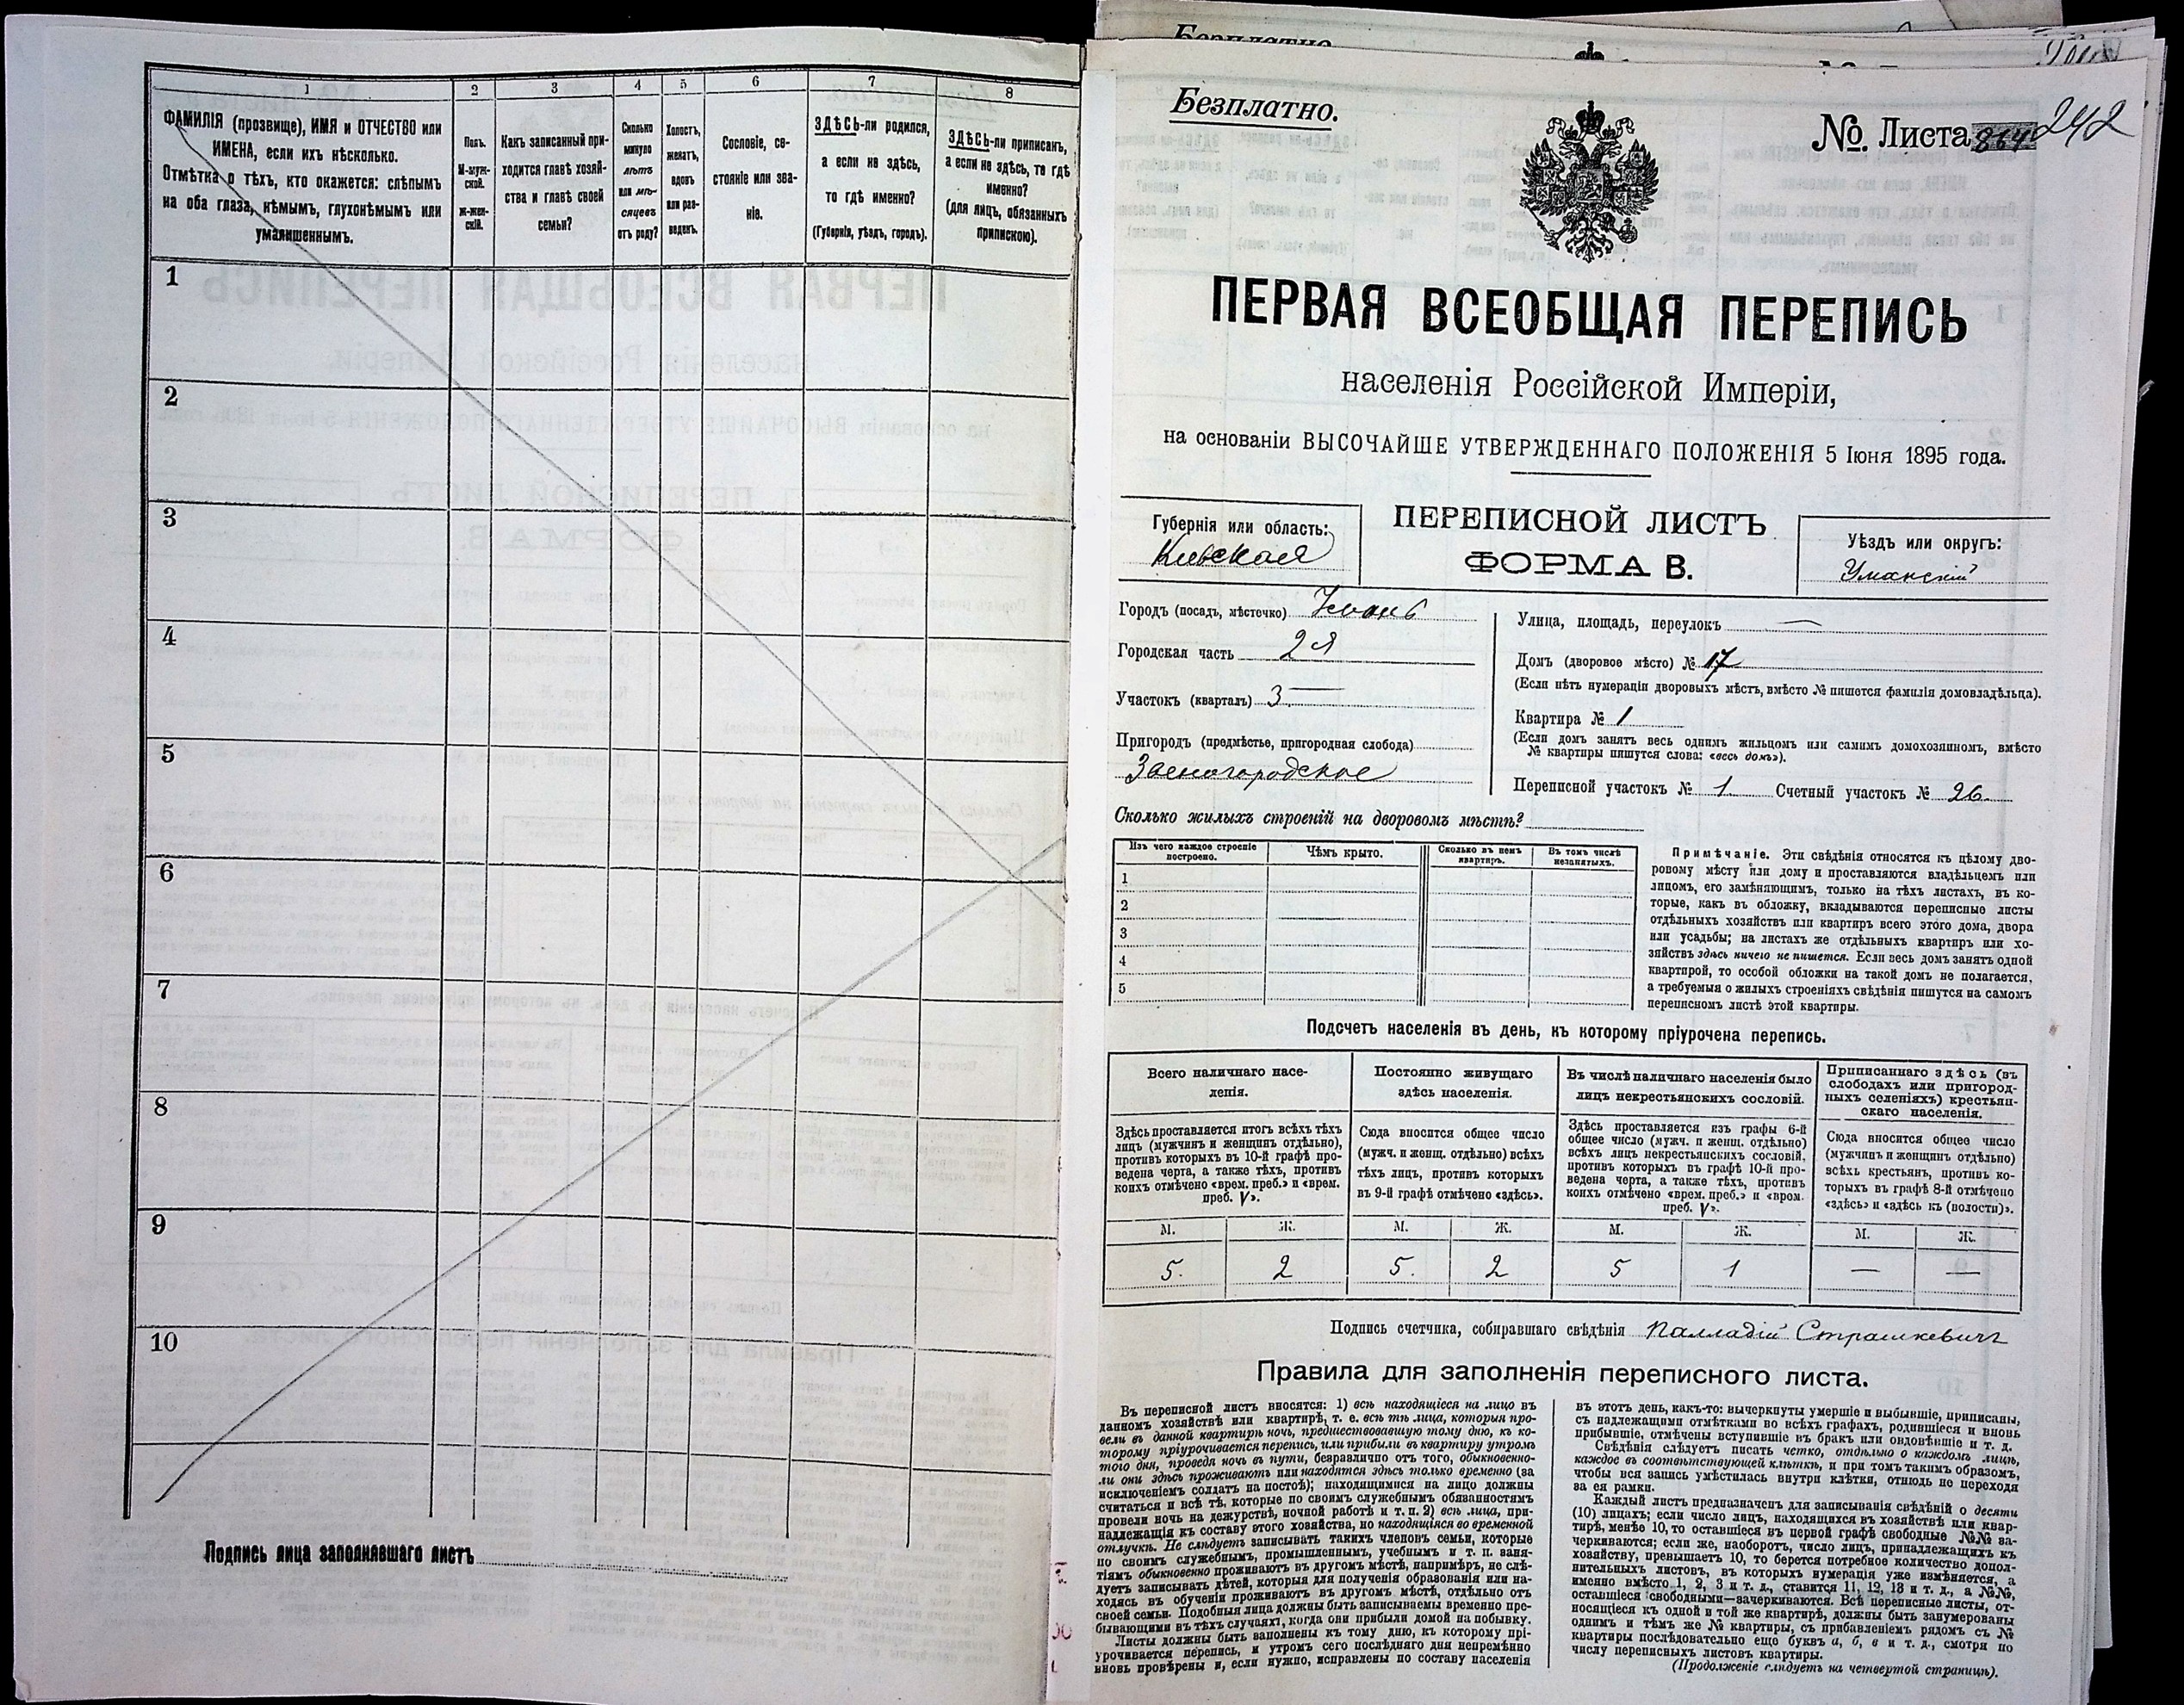 1 2 3 4 5 6 7 8
ФАМИЛІЯ (прозвище), ИМЯ и ОТЧЕСТВО или
ИМЕНА, если ихъ нѣсколько.
Отмѣтка о тѣхъ, кто окажется: слѣпымъ
на оба глаза, нѣмымъ, глухонѣмымъ или
умалишеннымъ.
Полъ.
М-муж-
ской.
Ж-жен-
скій.
Какъ записанный при-
ходится главѣ хозяй-
ства и главѣ своей
семьи?
Сколько
минуло
лѣтъ
или мѣ-
сяцевъ
отъ роду?
Холостъ,
женатъ,
вдовъ
или раз-
веденъ.
Сословіе, со-
стояніе или зва-
ніе.
ЗДѢСЬ-ли родился,
а если не здѣсь,
то гдѣ именно?
(Губернія, уѣздъ, городъ).
ЗДѢСЬ-ли приписанъ,
а если не здѣсь, то гдѣ
именно?
(для лицъ, обязанныхъ
припискою).
1
2
3
4
5
6
7
8
9
10
Подпись лица заполнявшаго листъ
Безплатно.
Безплатно.
№ Листа 242
ПЕРВАЯ ВСЕОБЩАЯ ПЕРЕПИСЬ
населенія Россійской Имперіи,
на основаніи ВЫСОЧАЙШЕ УТВЕРЖДЕННАГО ПОЛОЖЕНІЯ 5 Іюня 1895 года.
Губернія или область:
Кіевская
ПЕРЕПИСНОЙ ЛИСТЪ
ФОРМА В.
Уѣздъ или округъ:
Уманскій
Городъ (посадъ, мѣстечко) Умань
Городская часть 2я
Участокъ (кварталъ) 3 —
Пригородъ (предмѣстье, пригородная слобода)
Звенигородское
Улица, площадь, переулокъ —
Домъ (дворовое мѣсто) № 17
(Если нѣтъ нумераціи дворовыхъ мѣстъ, вмѣсто № пишется фамилія домовладѣльца).
Квартира № 1
(Если домъ занятъ весь однимъ жильцомъ или самимъ домохозяиномъ, вмѣсто
№ квартиры пишутся слова: «весь домъ»).
Переписной участокъ № 1 Счетный участокъ № 26
Сколько жилыхъ строеній на дворовомъ мѣстѣ?
Изъ чего каждое строеніе
построено.
Чѣмъ крыто.
Сколько въ немъ
квартиръ.
Въ томъ числѣ
незанятыхъ.
1
2
3
4
5
Примѣчаніе. Эти свѣдѣнія относятся къ цѣлому дво-
ровому мѣсту или дому и проставляются владѣльцемъ или
лицомъ, его замѣняющимъ, только на тѣхъ листахъ, въ ко-
торые, какъ въ обложку, вкладываются переписные листы
отдѣльныхъ хозяйствъ или квартиръ всего этого дома, двора
или усадьбы; на листахъ же отдѣльныхъ квартиръ или хо-
зяйствъ здѣсь ничего не пишется. Если весь домъ занятъ одной
квартирой, то особой обложки на такой домъ не полагается,
а требуемыя о жилыхъ строеніяхъ свѣдѣнія пишутся на самомъ
переписномъ листѣ этой квартиры.
Подсчетъ населенія въ день, къ которому пріурочена перепись.
Всего наличнаго насе-
ленія.
Здѣсь проставляется итогъ всѣхъ тѣхъ
лицъ (мужчинъ и женщинъ отдѣльно),
противъ которыхъ въ 10-й графѣ про-
ведена черта, а также тѣхъ, противъ
коихъ отмѣчено «врем. преб.» и «врем.
преб. V».
Постоянно живущаго
здѣсь населенія.
Сюда вносится общее число
(мужч. и женщ. отдѣльно) всѣхъ
тѣхъ лицъ, противъ которыхъ
въ 9-й графѣ отмѣчено «здѣсь».
Въ числѣ наличнаго населенія было
лицъ некрестьянскихъ сословій.
Здѣсь проставляется изъ графы 6-й
общее число (мужч. и женщ. отдѣльно)
всѣхъ лицъ некрестьянскихъ сословій,
противъ которыхъ въ графѣ 10-й про-
ведена черта, а также тѣхъ, противъ
коихъ отмѣчено «врем. преб.» и «врем.
преб. V».
Приписаннаго здѣсь (въ
слободахъ или пригород-
ныхъ селеніяхъ) крестьян-
скаго населенія.
Сюда вносится общее число
(мужчинъ и женщинъ отдѣльно)
всѣхъ крестьянъ, противъ ко-
торыхъ въ графѣ 8-й отмѣчено
«здѣсь» и «здѣсь къ (волости)».
М. Ж. М. Ж. М. Ж. М. Ж.
5. 2 5. 2 5 1 — —
Подпись счетчика, собиравшаго свѣдѣнія Палладій Страшкевичъ
Правила для заполненія переписного листа.
Въ переписной листъ вносятся: 1) всѣ находящіеся на лицо въ
данномъ хозяйствѣ или квартирѣ, т. е. всѣ тѣ лица, которыя про-
вели въ данной квартирѣ ночь, предшествовавшую тому дню, къ ко-
торому пріурочивается перепись, или прибыли въ квартиру утромъ
того дня, проведя ночь въ пути, безразлично отъ того, обыкновенно-
ли они здѣсь проживаютъ или находятся здѣсь только временно (за
исключеніемъ солдатъ на постоѣ); находящимися на лицо должны
считаться и всѣ тѣ, которые по своимъ служебнымъ обязанностямъ
провели ночь на дежурствѣ, ночной работѣ и т. п. 2) всѣ лица, при-
надлежащія къ составу этого хозяйства, но находящіяся во временной
отлучкѣ. Не слѣдуетъ записывать такихъ членовъ семьи, которые
по своимъ служебнымъ, промышленнымъ, учебнымъ и т. п. заня-
тіямъ обыкновенно проживаютъ въ другомъ мѣстѣ, напримѣръ, не слѣ-
дуетъ записывать дѣтей, которыя для полученія образованія или на-
ходясь въ обученіи проживаютъ въ другомъ мѣстѣ, отдѣльно отъ
своей семьи. Подобныя лица должны быть записываемы временно пре-
бывающими въ тѣхъ случаяхъ, когда они прибыли домой на побывку.
Листы должны быть заполнены къ тому дню, къ которому прі-
урочивается перепись, и утромъ сего послѣдняго дня непремѣнно
вновь провѣрены и, если нужно, исправлены по составу населенія
въ этотъ день, какъ-то: вычеркнуты умершіе и выбывшіе, приписаны,
съ надлежащими отмѣтками во всѣхъ графахъ, родившіеся и вновь
прибывшіе, отмѣчены вступившіе въ бракъ или овдовѣвшіе и т. д.
Свѣдѣнія слѣдуетъ писать четко, отдѣльно о каждомъ лицѣ,
каждое въ соотвѣтствующей клѣткѣ, и при томъ такимъ образомъ,
чтобы вся запись умѣстилась внутри клѣтки, отнюдь не переходя
за ея рамки.
Каждый листъ предназначенъ для записыванія свѣдѣній о десяти
(10) лицахъ; если число лицъ, находящихся въ хозяйствѣ или квар-
тирѣ, менѣе 10, то оставшіеся въ первой графѣ свободные №№ за-
черкиваются; если же, наоборотъ, число лицъ, принадлежащихъ къ
хозяйству, превышаетъ 10, то берется потребное количество допол-
нительныхъ листовъ, въ которыхъ нумерація уже измѣняется, а
именно вмѣсто 1, 2, 3 и т. д., ставится 11, 12, 13 и т. д., а №№,
оставшіеся свободными—зачеркиваются. Всѣ переписные листы, от-
носящіеся къ одной и той же квартирѣ, должны быть занумерованы
однимъ и тѣмъ же № квартиры, съ прибавленіемъ рядомъ съ №
квартиры послѣдовательно еще буквъ а, б, в и т. д., смотря по
числу переписныхъ листовъ квартиры.
(Продолженіе слѣдуетъ на четвертой страницѣ).